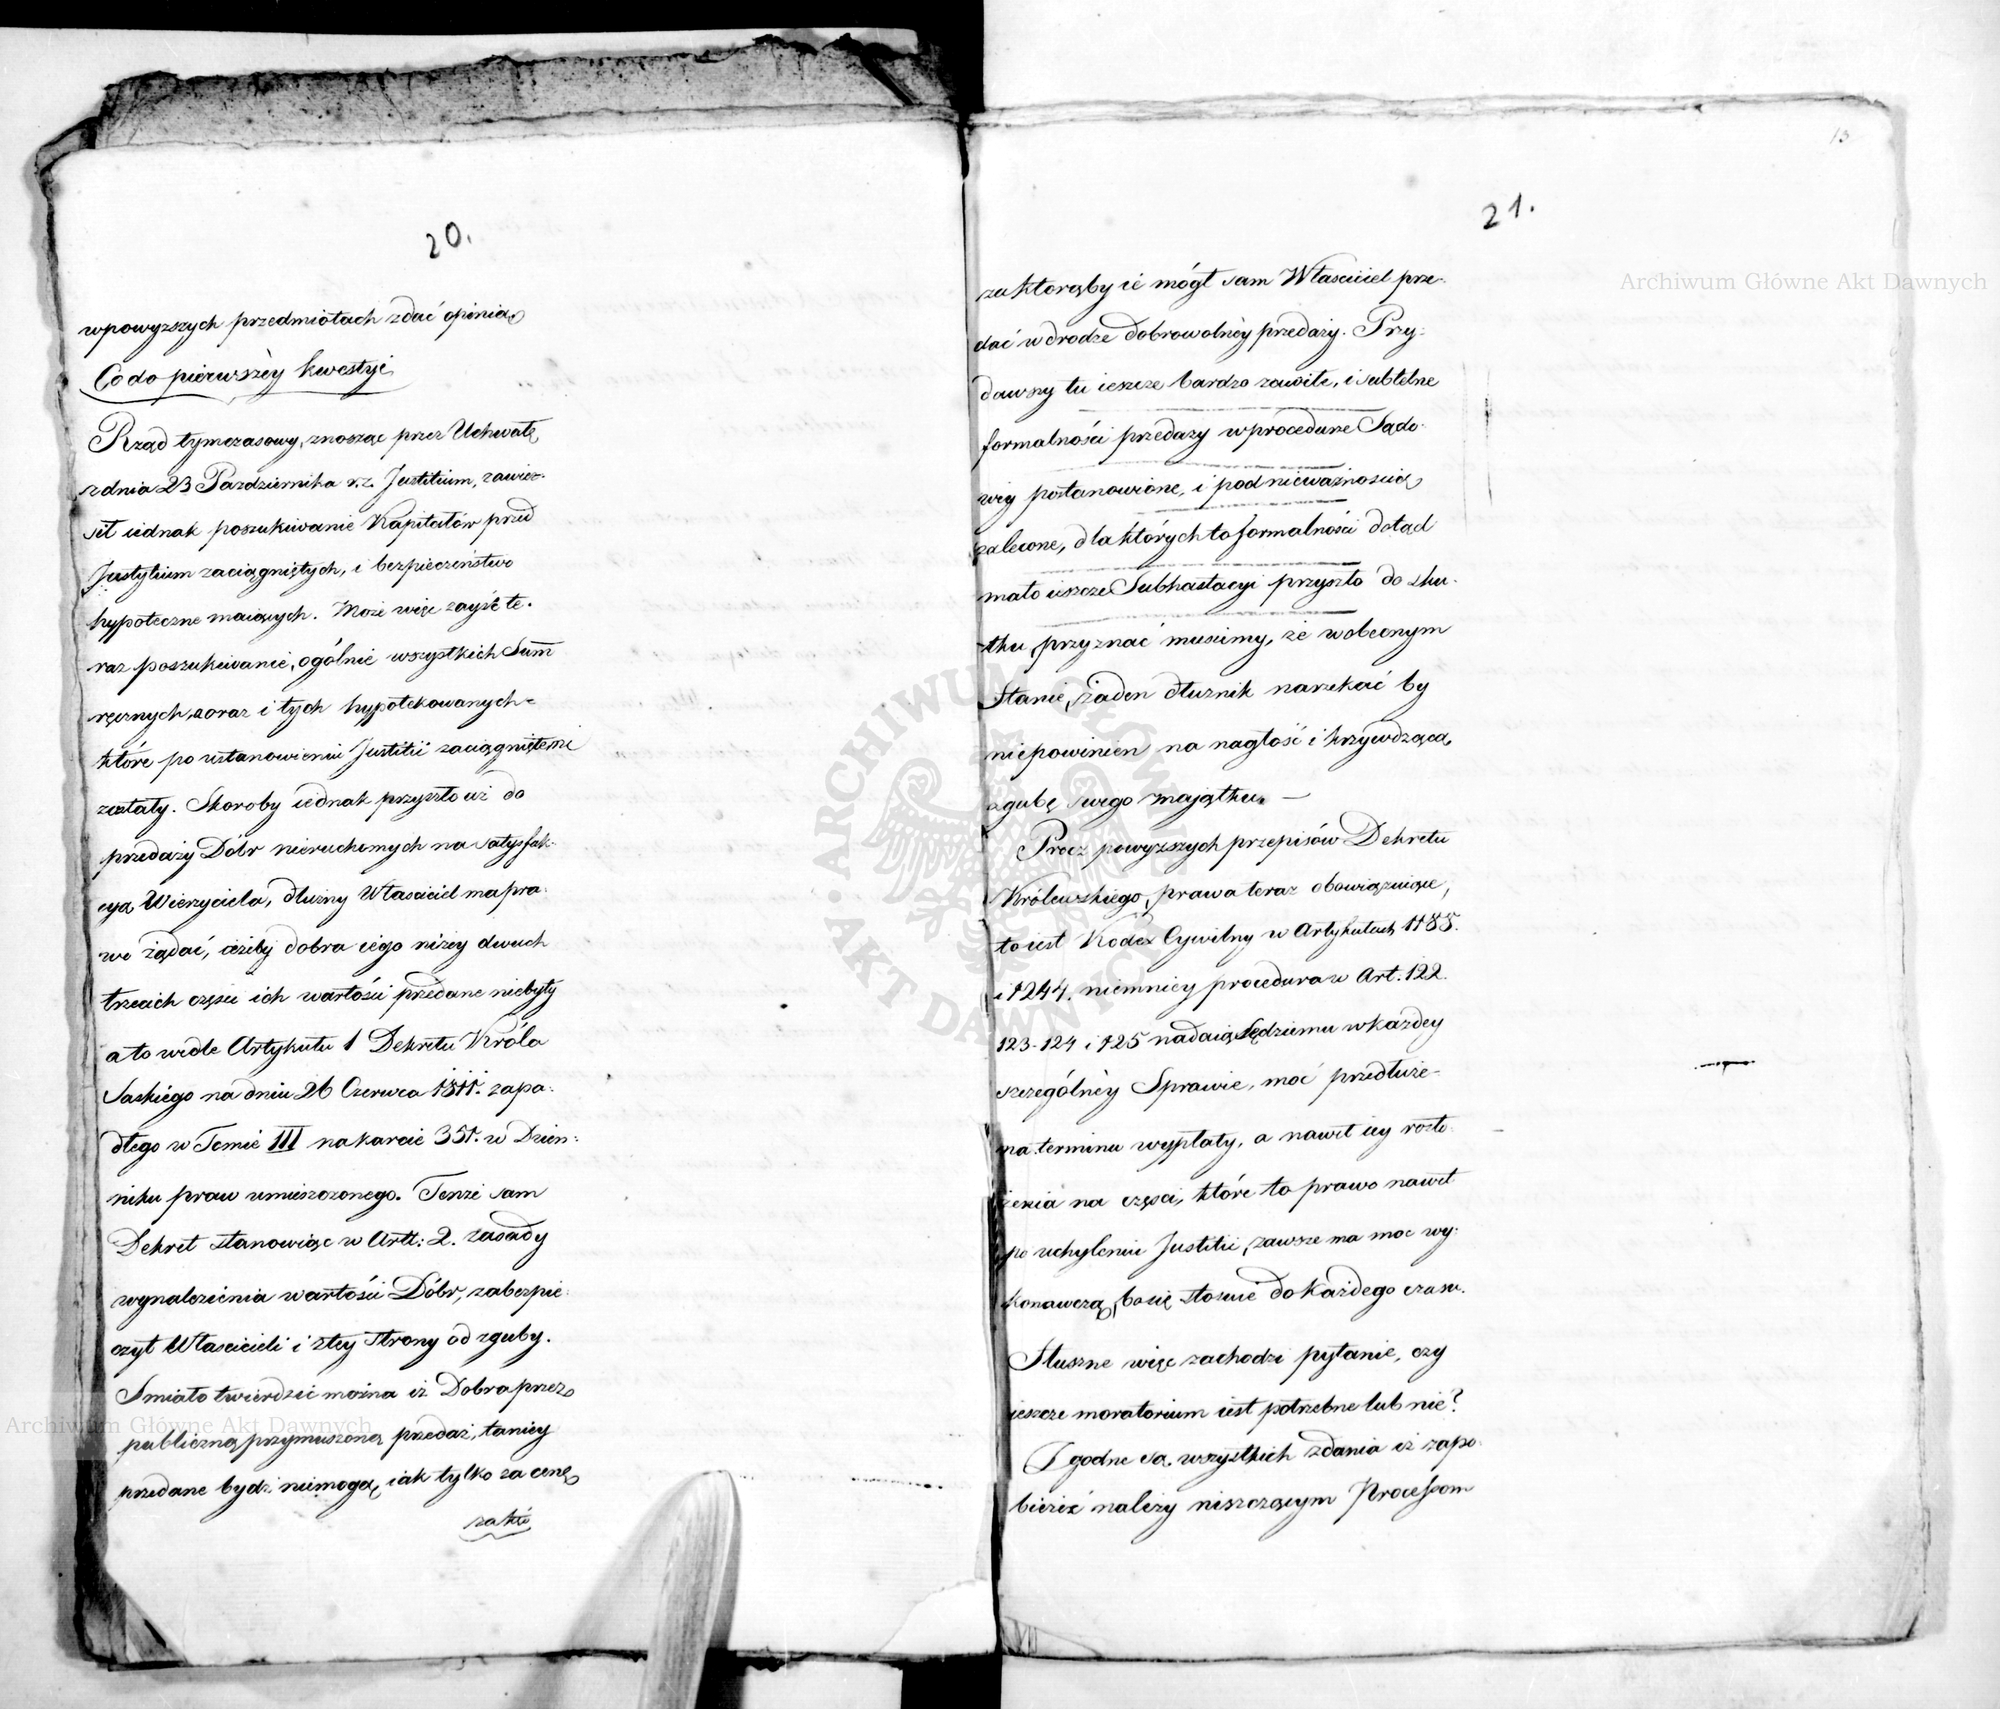 20.
wpowyzszych przedmiotach zdać opinią
Co do pierwszéy kwestyi
Rząd tymczasowy, znosząc przez Uchwałę
z dnia 23 Pazdziernika r.z. Justitium, zawie-
sił iednak poszukiwanie Kapitałów przed
Justytium zaciągniętych, i bezpieczeństwo
hypoteczne maiących. Może więc zayść te-
raz poszukiwanie, ogólnie wszystkich Sum̄
ręcznych, zoraz i tych hypotekowanych
które po ustanowieniu Justitii zaciągniętemi
zostały. Skoroby iednak przyszło iuż do
przedaży Dóbr nieruchomych na satysfak-
cyą Wierzyciela, dłużny Własciciel ma pra-
wo żądać, ażeby dobra iego niżey dwuch
trzecich częsci ich wartości przedane niebyły
a to wedle Artykułu 1 Dekretu Króla
Saskiégo na dniu 26 Czerwca 1811. zapa-
dłego w Tomie III na karcie 351. w Dzien:
niku praw umieszczonego. Tenże sam
Dekret stanowiąc w Artt: 2. zasady
wynalezienia wartości Dóbr, zabezpie:
czył Włascicieli i z tey strony od zguby.
Smiało twierdzić można iż Dobra przez
publiczną przymuszoną przedaż, taniey
przedane bydź niemogą, iak tylko za cenę
za któ
13
21.
za którąby ie mógł sam Własciciel prze-
dać w drodze dobrowolnéy przedaży. Przy-
dawszy tu ieszcze bardzo zawiłe, i subtelne
formalności przedaży w procedurze Sądo-
wéy postanowione, i pod nieważnoscią
zalecone, dla których to formalności dotąd
mało ieszcze Subhastacyi przyszło do sku-
tku, przyznać musimy, że w obecnym
Stanie, żaden dłużnik narzekać by
niepowinien na nagłość i krzywdzącą
zgubę swego majątku. —
Procz powyższych przepisów Dekretu
Królewskiego, prawa teraz obowiązuiące,
to iest Kodex Cywilny w Artykułach 1185.
i 1244. niemniey procedura w Art. 122.
123-124 i 125 nadaią Sędziemu w każdey
szczególnéy Sprawie, moc przedłuże-
nia terminu wypłaty, a nawet iey rozło-
żenia na częsci, które to prawo nawet
po uchyleniu Justitii, zawsze ma moc wy-
konawczą, bo się stosuie do każdego czasu.
Słuszne więc zachodzi pytanie, czy
ieszcze moratorium iest potrzebne lub nie?
Zgodne są wszystkich zdania iż zapo-
bieżéć należy niszczącym Processom
VII
Archiwum Główne Akt Dawnych
Archiwum Główne Akt Dawnych
ARCHIWUM GŁÓWNE AKT DAWNYCH